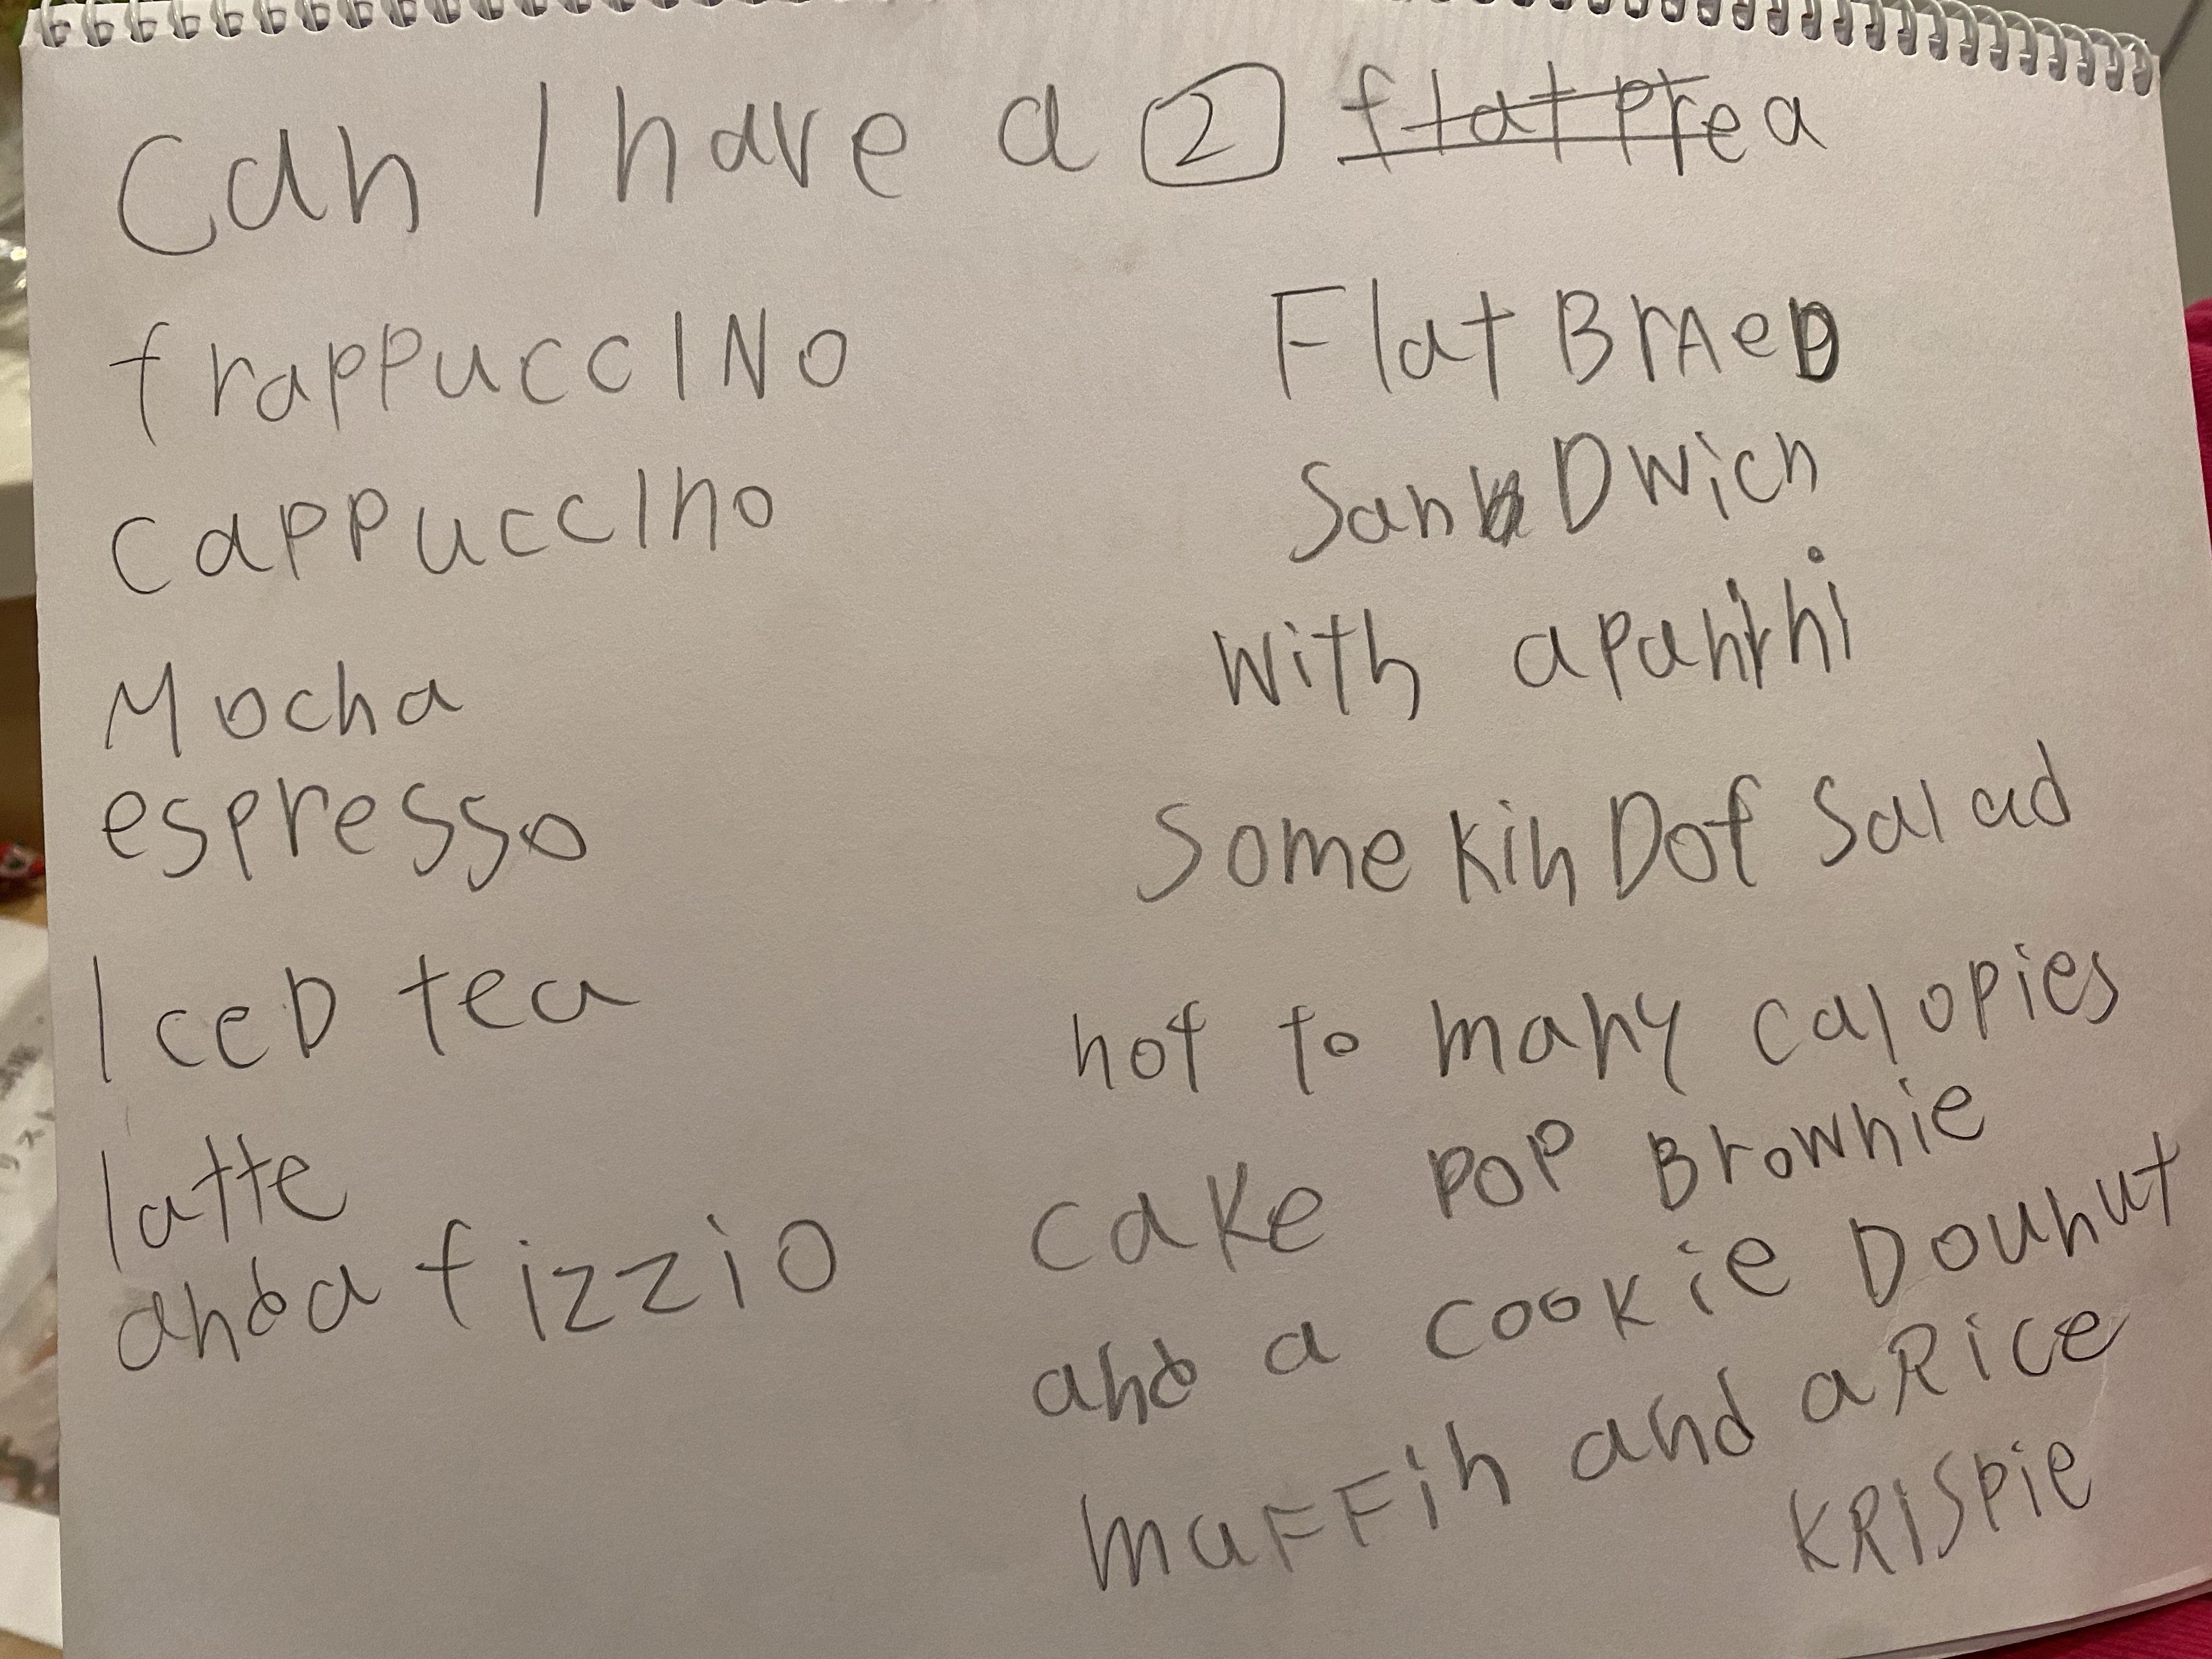 Can I have a 2 flat prea
frappuccINo
cappuccIno
Mocha
espresso
IceD tea
latte
anda fizzio
Flat BrAeD
SanDwich
with a panini
some kinDof Salad
not to many calopies
cake pop Brownie
and a cookie Dounut
muFFin and a Rice
KRISpie